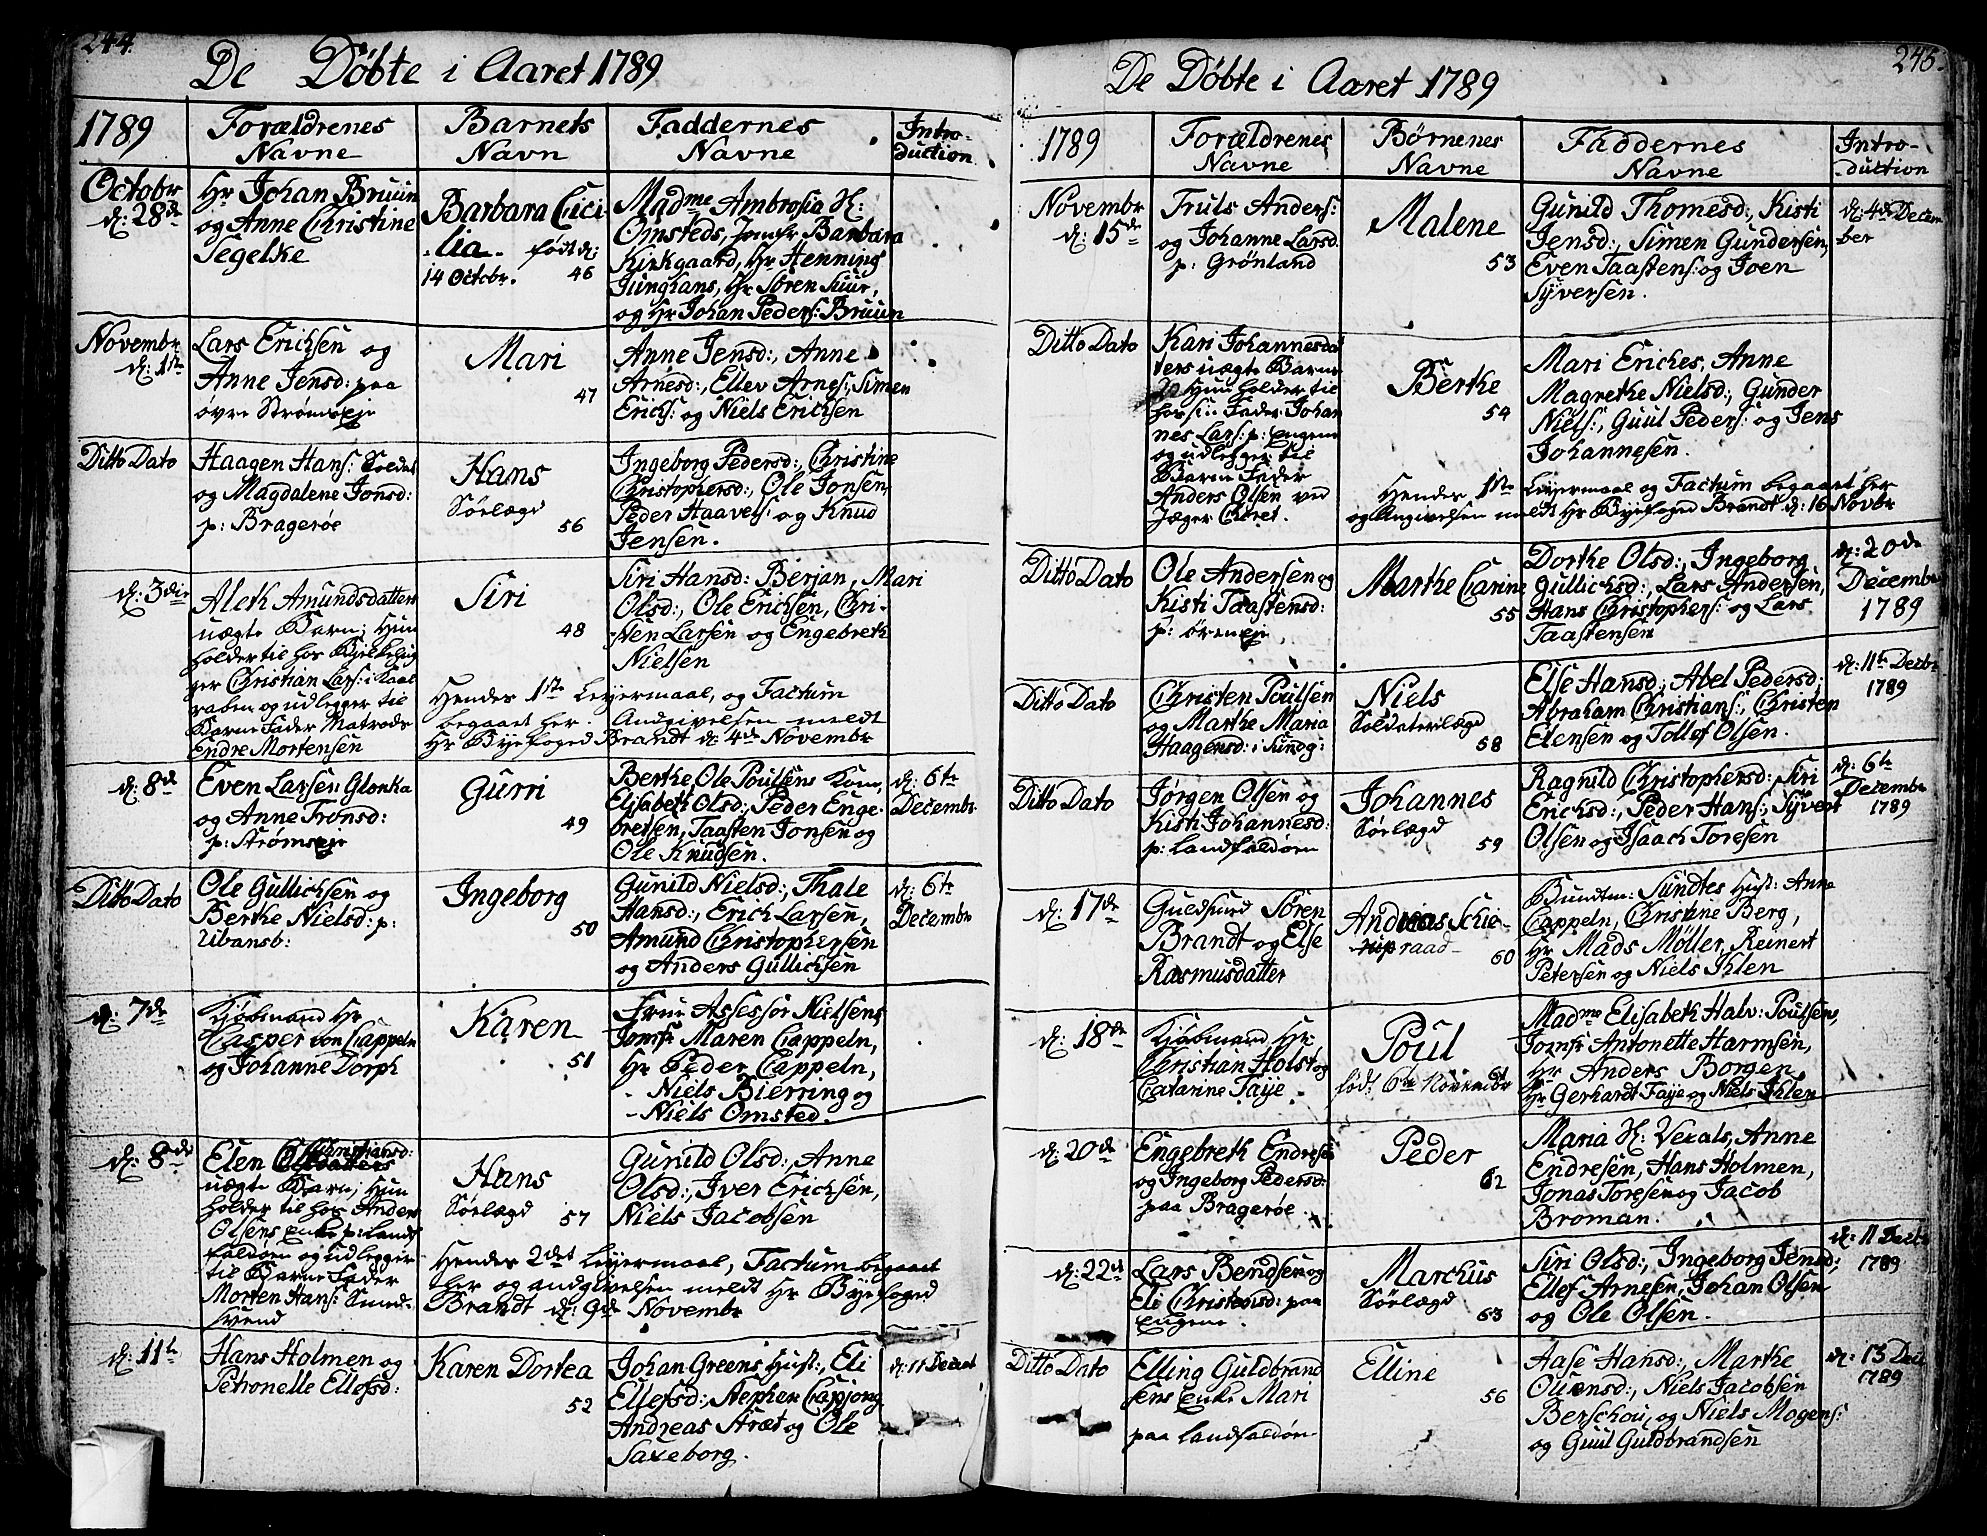 244.
De Döbte i Aaret 1789
1789
Forældrenes
Navne
Barnets
Navn
Faddernes
Navne
Intro-
duction
Octobr
d: 28de
Hr Johan Bruun
og Anne Christine
Segelke
Barbara Cici
lia. født d:
14 Octobr. 46
Madme Ambrosia H:
Omsteds, Jomfr Barbara
Kirkgaard, Hr Henning
Junghans, Hr Søren Suur,
og Hr Johan Peders: Bruun
Novembr
d: 1ste
Lars Erichsen og
Anne Jensd: paa
øvre Strømseje
Mari
47
Anne Jensd:, Anne
Arnesd:, Ellev Arnes:, Simen
Erichs: og Niels Erichsen
Ditto Dato
Haagen Hans: Soldat
og Magdalene Jonsd:
p: Bragerøe
Hans
Sølægd
56
Ingeborg Pedersd:, Christine
Christophersd:, Ole Jonsen,
Peder Haavels: og Knud
Jensen.
d: 3die
Aleth Amundsdatters
uægte Barn; Hun
holder til hos
ger Christian Lars: i
og udlegger til
Barne Fader Matrods
Endre Mortensen
Siri
48
Siri Hansd: Berjan, Mari
Olsd:, Ole Erichsen, Chri-
sten Larsen og Engebreth
Nielsen
Hendes 1ste Leyermaal, og Factum
begaaet her. Andgivelsen meldt
Hr Byefoged Brandt d: 4de Novembr
d: 8de
Even Larsen Glonka
og Anne Tronsd:
p: Strømseje
Gurri
49
Berthe Ole Poulsens Kone,
Elisabeth Olsd:, Peder Enge-
bretsen, Taasten Jonsen og
Ole Knudsen.
d: 6te
Decembr
Ditto Dato
Ole Gullichsen og
Berthe Nielsd: p:
Ubansb:
Ingeborg
50
Gunild Nielsd:, Thale
Hansd:, Erich Larsen,
Amund Christophersen
og Anders Gullichsen
d: 6te
Decembr
d: 7de
Kjøbmand Hr
Casper von Cappeln
og Johanne Dorph
Karen
51
Frue Assessor Nielsens,
Jomfr: Maren Cappeln,
Hr Peder Cappeln,
- Niels Bierring og
- Niels Omsted.
d: 8de
Elen Christiansd:
uægte Barn; Hun
holder til hos Anders
Olsens Enke p: Land-
faldøen og udlegger
til Barne Fader
Morten Hans:
svend
Hans
Sølægd
57
Gunild Olsd:, Anne
Olsd:, Iver Erichsen,
Niels Jacobsen
Hendes 2det Leyermaal, Factum begaaet
her og andgivelsen meldt Hr Byefoged
Brandt d: 9de Novembr
d: 11te
Hans Holmen og
Petronelle Ellefsd:
Karen Dortea
52
Johan Greens Hust:, Eli
Ellefsd:, Stephen Capjong,
Andreas Stræt og Ole
Saxeborg.
d: 11 Decbr
245.
De Döbte i Aaret 1789
1789
Forældrenes
Navne
Børnenes
Navne
Faddernes
Navne
Intro-
duction
Novembr
d: 15de
Truls Anders:
og Johanne Larsd.
p: Grønland
Malene
53
Gunild Thomesd:, Kisti
Jensd:, Simen Gundersen,
Even Taastens: og Joen
Syversen.
d: 4de Decem
ber
Ditto Dato
Kari Johannesdat
ters uægte Barn
Hun holder til
hos sin Fader Johan
nes Lars: p: Engene
og udlegger til
Barne Fader
Anders Olsen ved
Jæger Choret.
Berthe
54
Mari Eriches, Anne
Magrethe Nielsd:, Gunder
Niels:, Guul Peders: og Jens
Johannesen.
Hendes 1ste Leyermaal og Factum begaaet her
og Angivelsen meldt Hr Byefoged Brandt d: 16 Novbr
Ditto Dato
Ole Andersen og
Kisti Taastensd:
p: Øreneje
Marthe Carine
55
Dorthe Olsd:, Ingeborg
Gullichsd:, Lars Andersen,
Hans Christophers: og Lars
Taastensen
d: 20de
Decembr
1789
Ditto Dato
Christen Poulsen
og Marthe Maria
Haagensd: i Sundg:
Niels
Soldaterlægd
58
Else Hansd:, Abel Pedersd:
Abraham Christians:, Christen
Elensen og Tollef Olsen.
d: 11te Decbr
1789
Ditto Dato
Jørgen Olsen og
Kisti Johannesd:
p: Landfaldøen
Johannes
Sølægd
59
Ragnild Christophersd:, Siri
Erichsd:, Peder Hans:, Syvert
Olsen og Isaach Toresen
d: 6te
Decembr
1789
d: 17de
Guldsmed Søren
Brandt og Else
Rasmusdatter
Andreas Schie-
raad
60
Bundtm: Sundtes Hust: Anne
Cappeln, Christine Berg,
Hr Mads Møller, Reinert
Petersen og Niels Ihlen
d: 18de
Kjøbmand Hr
Christian Holst og
Catarine Faye
Poul
61
født 6te Novembr
Madme Elisabeth Halv: Poulsens,
Jomfr Antonette Harmsen,
Hr Anders Borgen
Hr Gerhardt Faye og Niels Ihlen
d: 20de
Engebreth Endresen
og Ingeborg Pedersd:
paa Bragerøe
Peder
62
Maria H: Verals, Anne
Endresen, Hans Holmen,
Jonas Toresen og Jacob
Broman.
d: 22de
Lars Bendsen og
Eli Christensd: paa
Engene
Marchus
Sølægd
63
Siri Olsd:, Ingeborg Jensd:
Ellef Arnesen, Johan Olsen
og Ole Olsen.
d: 11 Decbr
1789
Ditto Dato
Elling Guldbrand
sens Enke Mari
paa Landfaldøen
Elline
56
Aase Hansd:, Marthe
Olivensd:, Niels Jacobsen
Berschou, og Niels Mogens:
og Guul Guldbrandsen
d: 13 Dec
1789